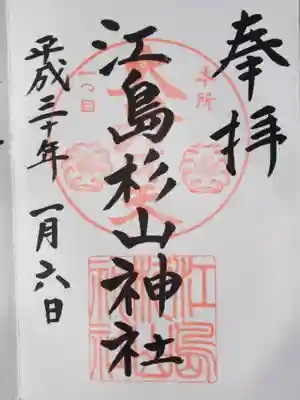 奉拝
江島杉山神社
平成三十年 一月六日
本所
一つ目
江島杉山神社